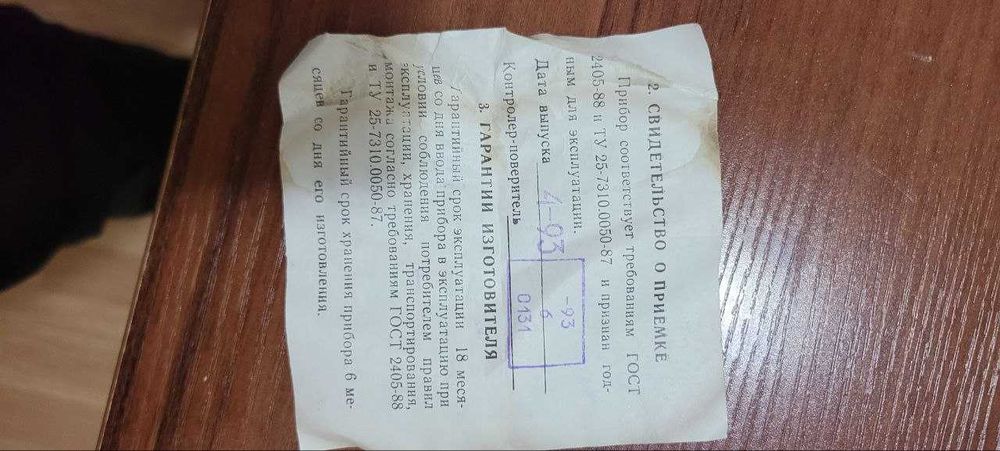 2. СВИДЕТЕЛЬСТВО О ПРИЕМКЕ
Прибор соответствует требованиям ГОСТ
2405-88 и ТУ 25-7310.0050-87 и признан год-
ным для эксплуатации.
Дата выпуска 4-93
Контролер-поверитель
-93
6
0131
3. ГАРАНТИИ ИЗГОТОВИТЕЛЯ
Гарантийный срок эксплуатации 18 меся-
цев со дня ввода прибора в эксплуатацию при
условии соблюдения потребителем правил
эксплуатации, хранения, транспортирования,
монтажа согласно требованиям ГОСТ 2405-88
и ТУ 25-7310.0050-87.
Гарантийный срок хранения прибора 6 ме-
сяцев со дня его изготовления.